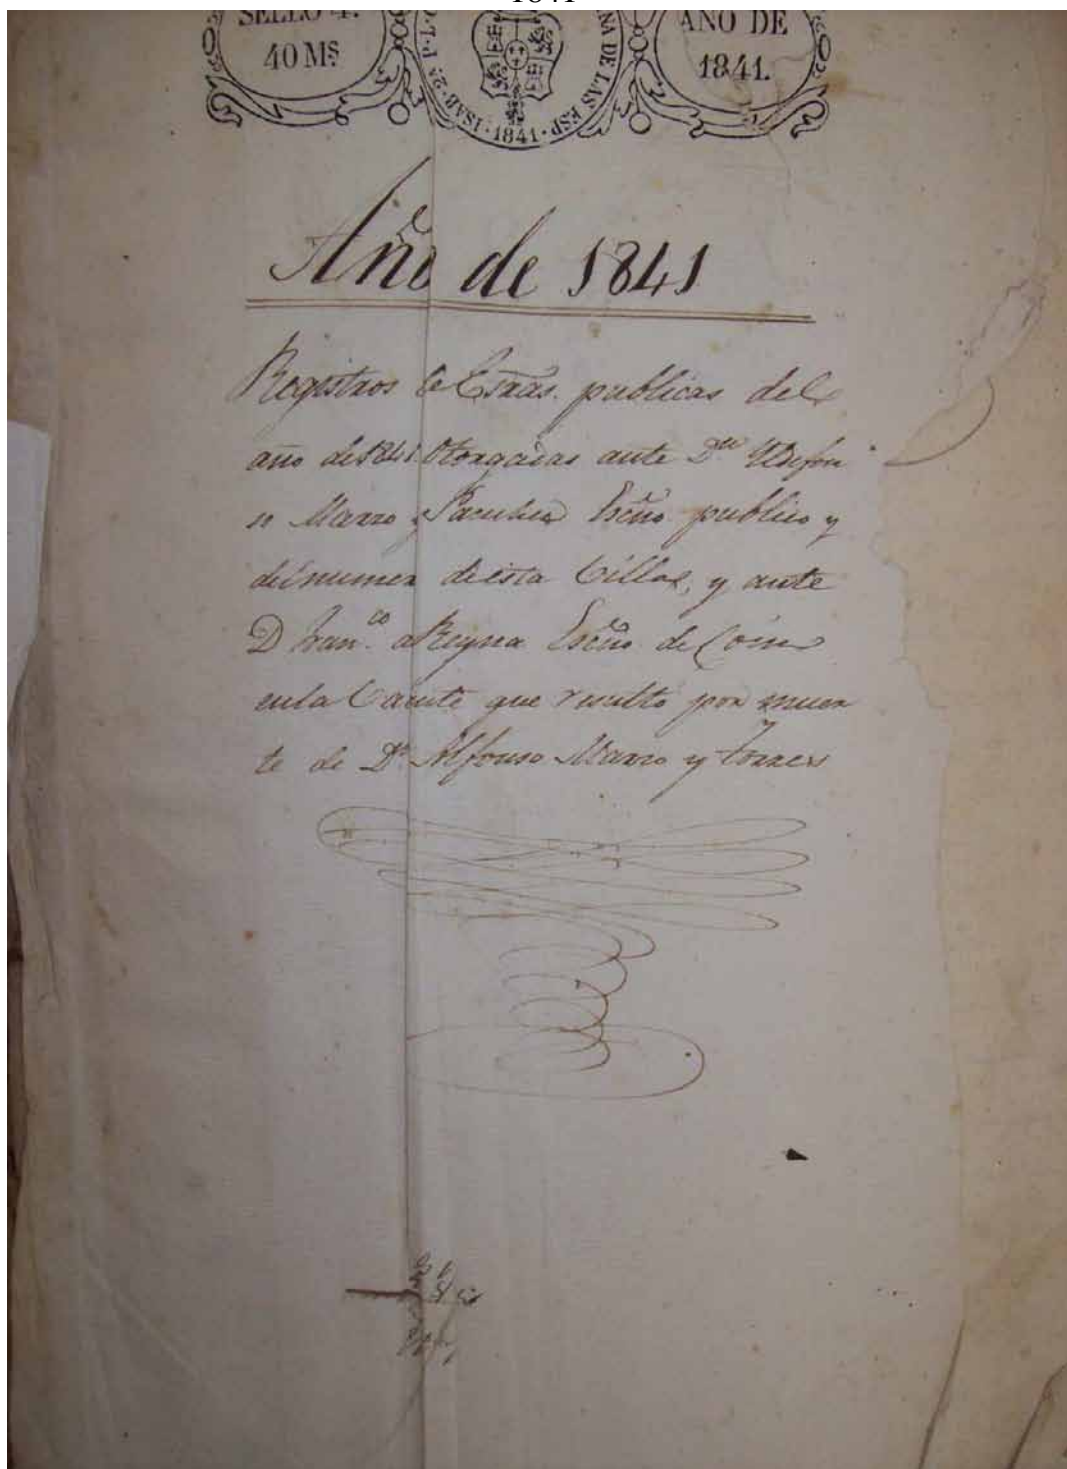 1841
SELLO 4.º
40 Ms
ISAB. 2ª P. L. G.
NA DE LAS ESP.
1841
AÑO DE
1841.
Año de 1841
Registros de Esras. publicas del
año de 1841 Otorgadas ante Dn Yldefon
so Marzo Sanchez Escño publico y
del numer de esta Villa, y ante
D Fran.co a Reyna Escño de Coin
en la Vacante que resulto por muer
te de Dn Alfonso Marzo y Torres